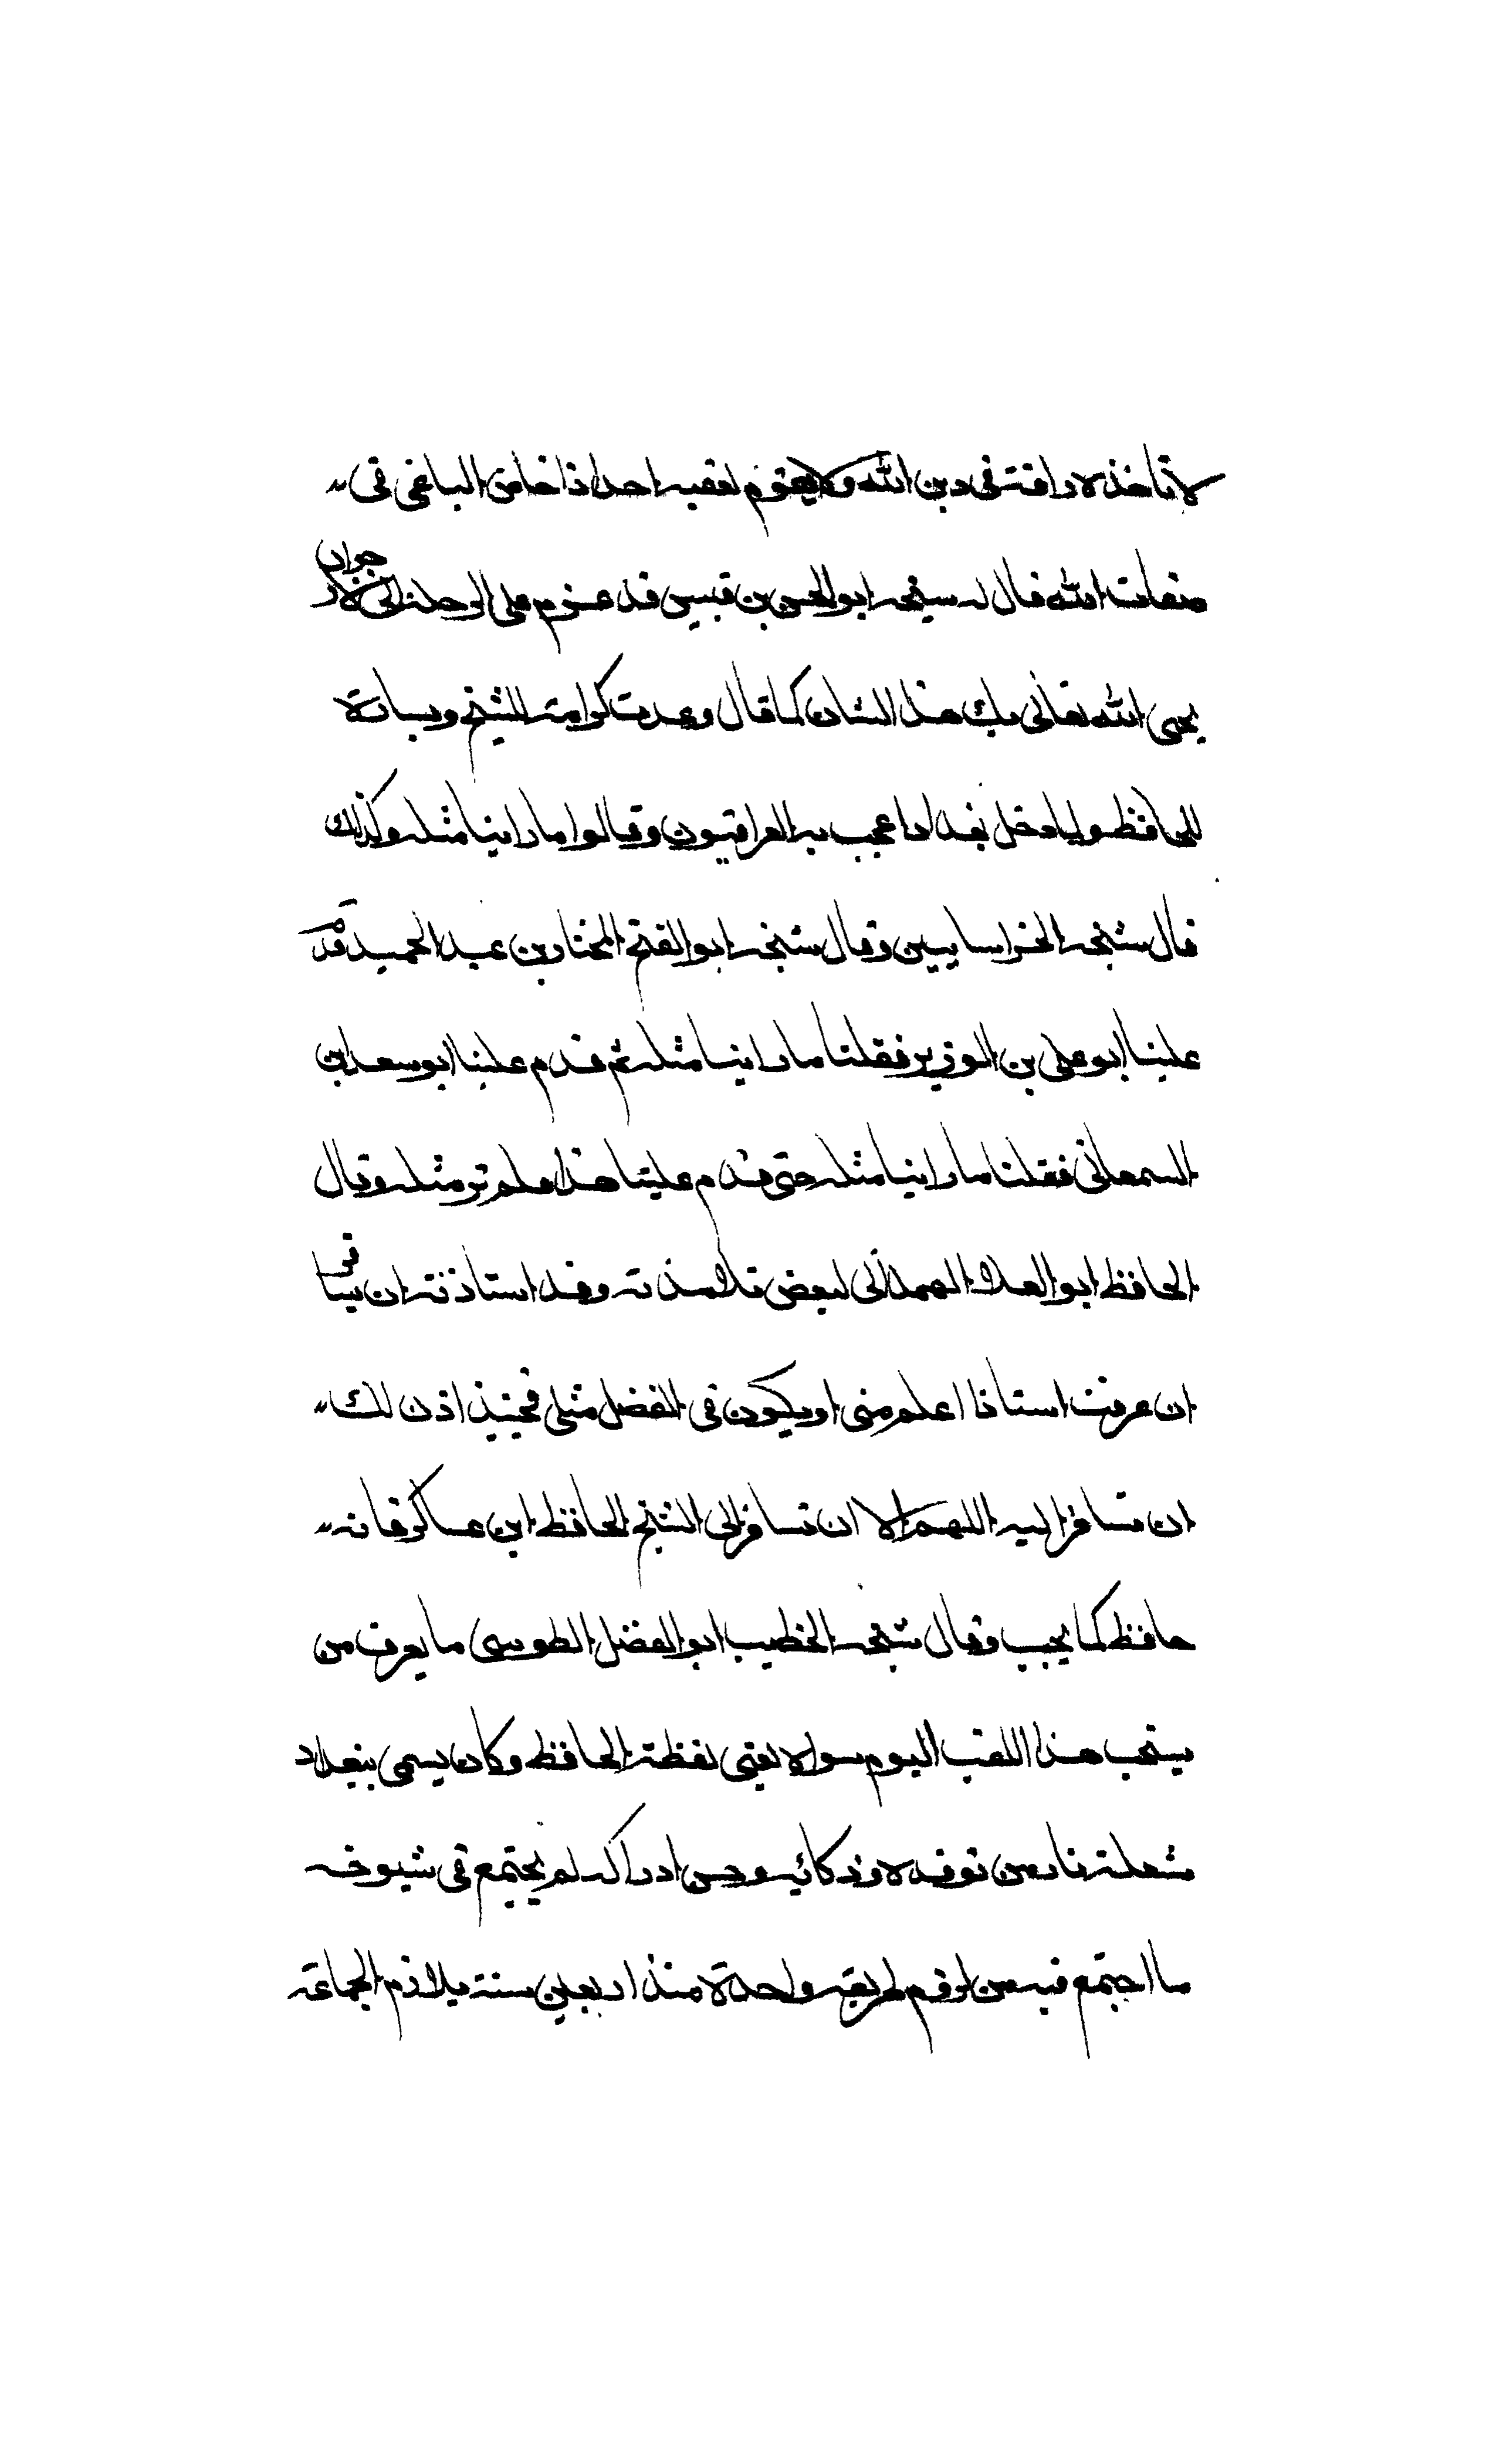 لاتاخذه رافة فى دين الله ولا يقوم لغضبه احد اذا خاض الباغى فى
صفات الله قال له شيخه ابو الحسن بن قبيس قد عزم على الرحلة انى لارجوان
يحيى الله تعالى بك هذا الشان كما قال وعدت كرامة للشيخ وبسارة
للحافظ ولما دخل بغداد اعجب به العراقيون وقالوا ما راينا مثله وكذلك
قال شيخه الخراسانيين وقال شيخه ابو الفتح المختار بن عبد الحميد قدم
علينا ابو على بن الوزير فقلنا ما راينا مثله ثم قدم علينا ابو سعد ابن
السمعانى فقلنا ما راينا مثله حتى قدم علينا هذا فلم نر مثله وقال
الحافظ ابو العلا الهمدانى لبعض تلامذته وقد استاذنه ان يسافر
ان عرفت استاذا اعلم منى او يكون فى الفضل مثلى فحينئذ اذن لك
ان تسافر اليه اللهم الا ان تسافر الى الشيخ الحافظ ابن عساكر فانه
حافظ كما يجب وقال شيخه الخطيب ابو الفضل الطوسى ما يعرف من
يستحب هذا اللقب اليوم سواه يعنى لفظة الحافظ وكان يسمى ببغداد
شعلة نار من توقده وذكائه وحسن ادراكه لم يجتمع فى شيوخه
ما اجتمع فيه من لزوم طريقة واحدة منذ اربعين سنة يلازم الجماعة